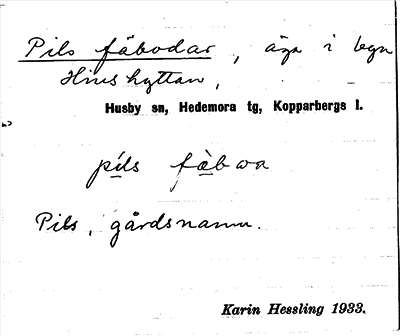 Pils fäbodar, äga i byn
Hinshyttan,
Husby sn, Hedemora tg, Kopparbergs l.
píls fàbωa
Pils, gårdsnamn.
Karin Hessling 1933.